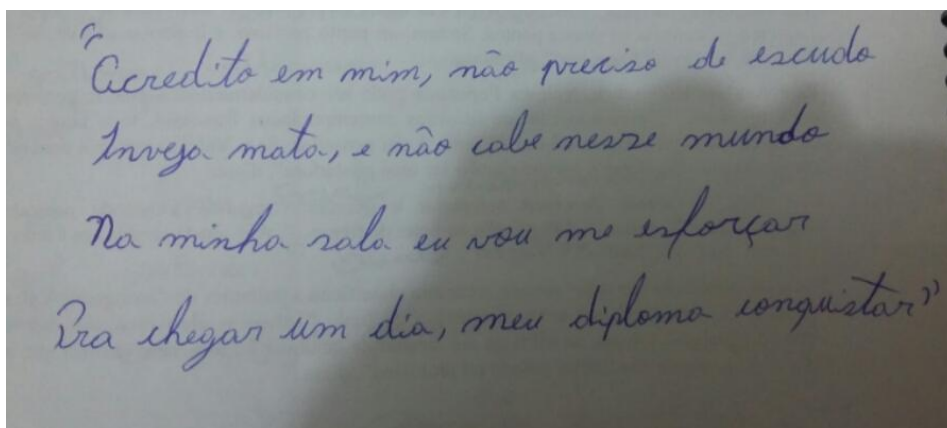 "Acredito em mim, não preciso de escudo
Inveja mata, e não cabe nesse mundo
Na minha sala eu vou me esforçar
Pra chegar um dia, meu diploma conquistar"